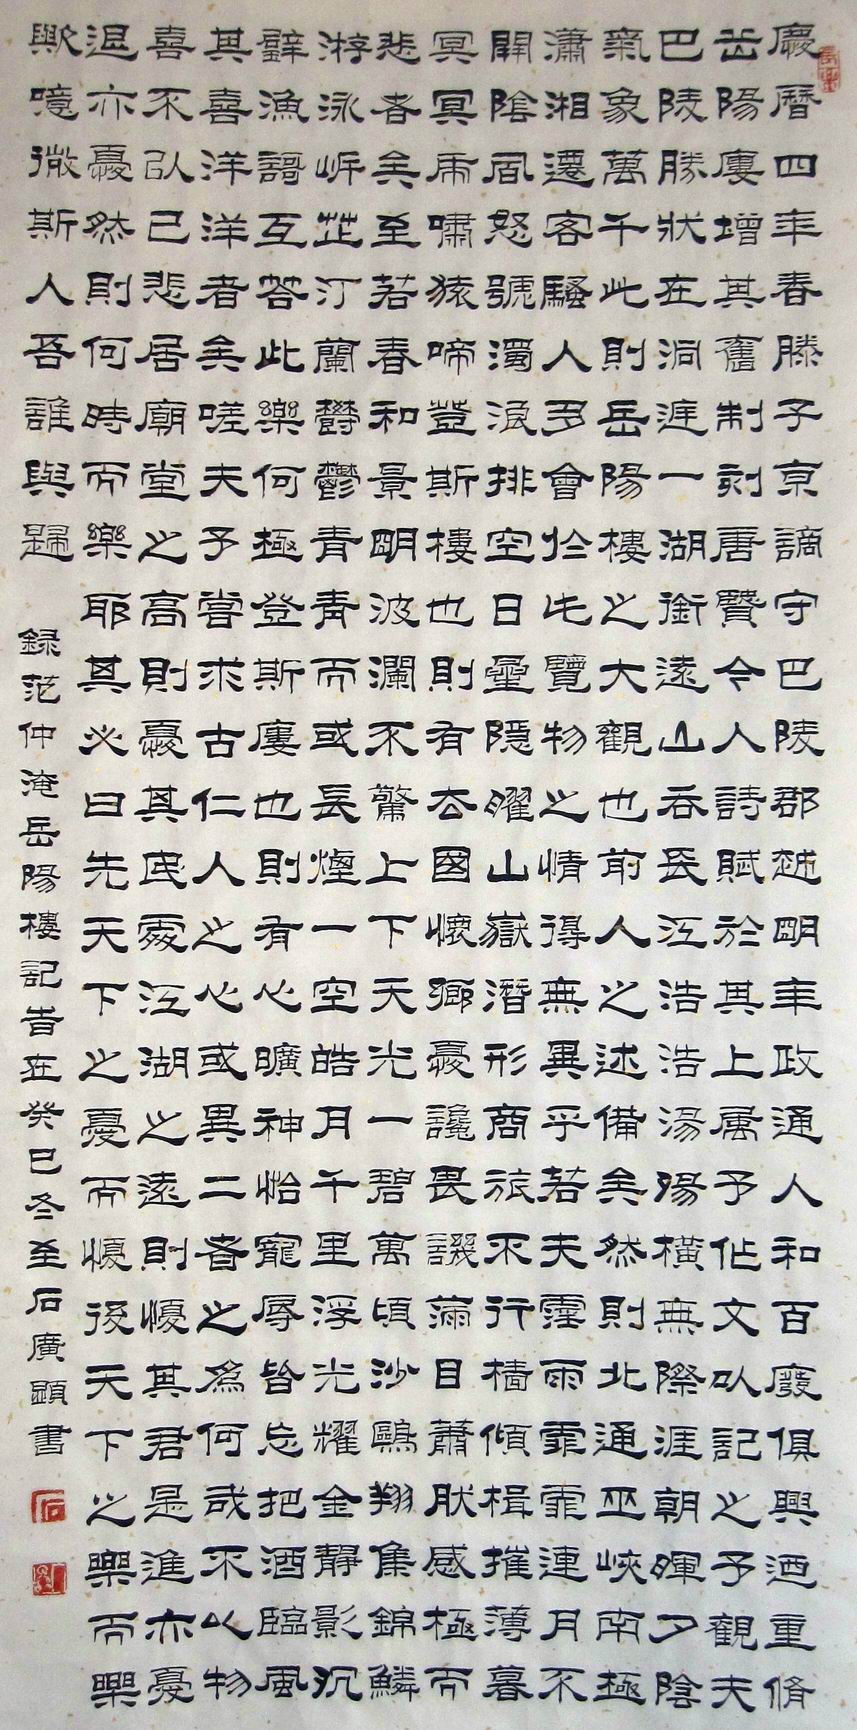 慶曆四年春滕子京謫守巴陵郡越明年政通人和百廢俱興迺重脩
岳陽廔增其舊制刻唐賢令人詩賦於其上属予作文以記之予觀夫
巴陵勝狀在洞庭一湖銜遠山吞長江浩浩湯湯橫無際涯朝暉夕陰
氣象萬千此則岳陽樓之大觀也前人之述備矣然則北通巫峽南極
瀟湘遷客騷人多會於此覽物之情得無異乎若夫霪雨霏霏連月不
開陰風怒號濁浪排空日星隱曜山嶽潛形商旅不行檣傾楫摧薄暮
冥冥虎嘯猿啼登斯樓也則有去國懷鄉憂讒畏譏滿目蕭然感極而
悲者矣至若春和景明波瀾不驚上下天光一碧萬頃沙鷗翔集錦鱗
游泳岸芷汀蘭鬱鬱青青而或長煙一空皓月千里浮光耀金靜影沉
璧漁謌互答此樂何極登斯廔也則有心曠神怡寵辱皆忘把酒臨風
其喜洋洋者矣嗟夫予嘗求古仁人之心或異二者之為何哉不以物
喜不以己悲居廟堂之高則憂其民處江湖之遠則懮其君是進亦憂
退亦憂然則何時而樂耶其必曰先天下之憂而懮後天下之樂而樂
歟噫微斯人吾誰與歸
録范仲淹岳陽樓記旹在癸巳冬至石廣顕書